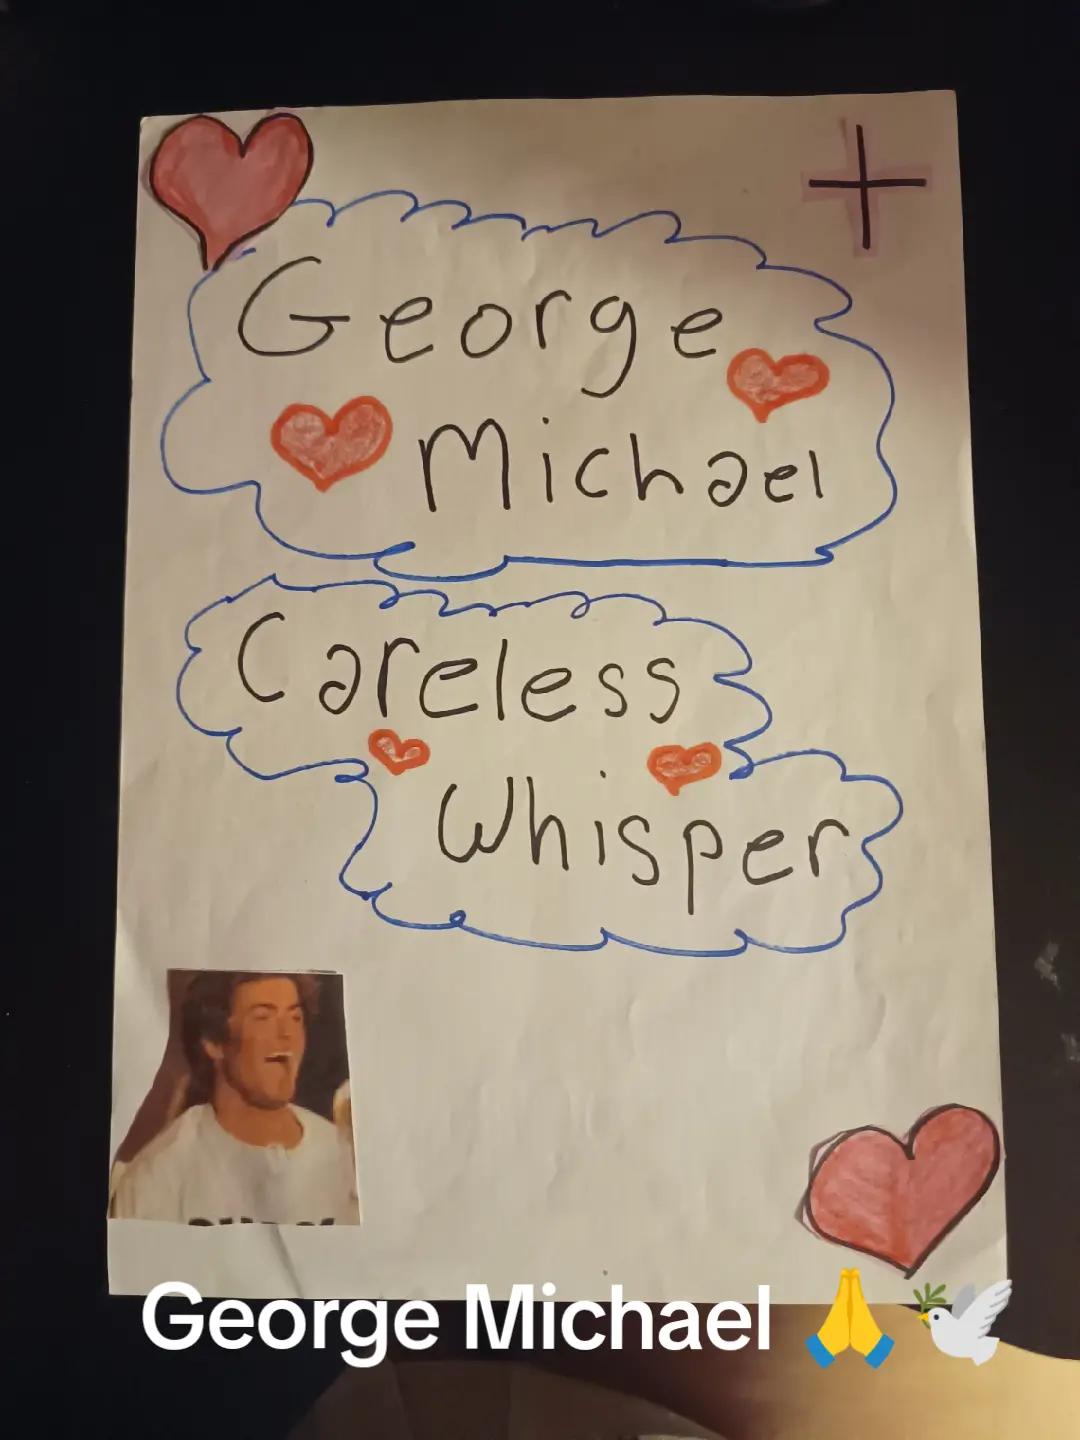 George
Michael
Careless
Whisper
George Michael 🙏🕊️